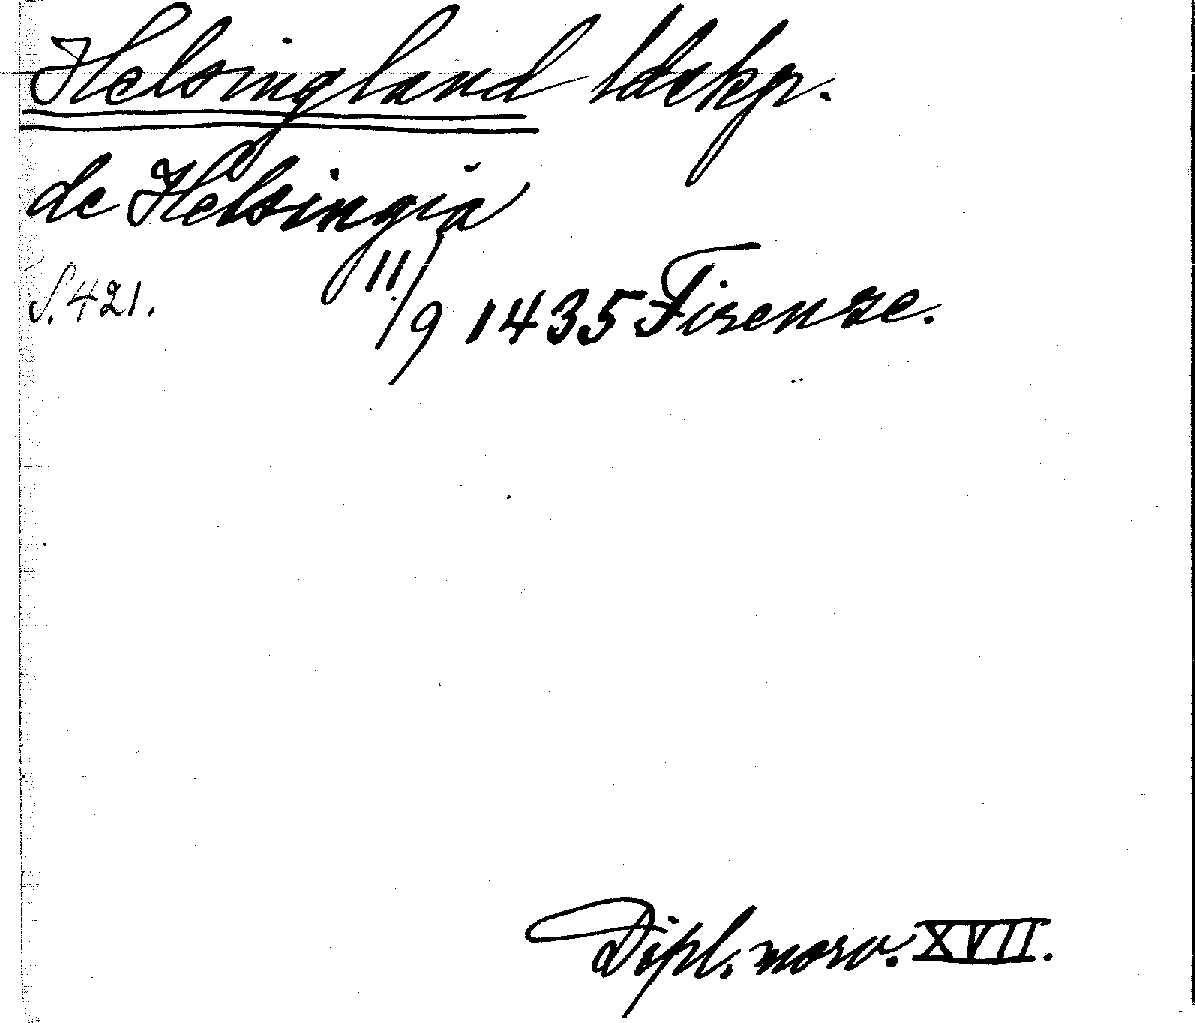 Helsingland ldskp.
de Helsingia
S. 421. 11/9 1435 Firenze.
Dipl. norv. XVII.